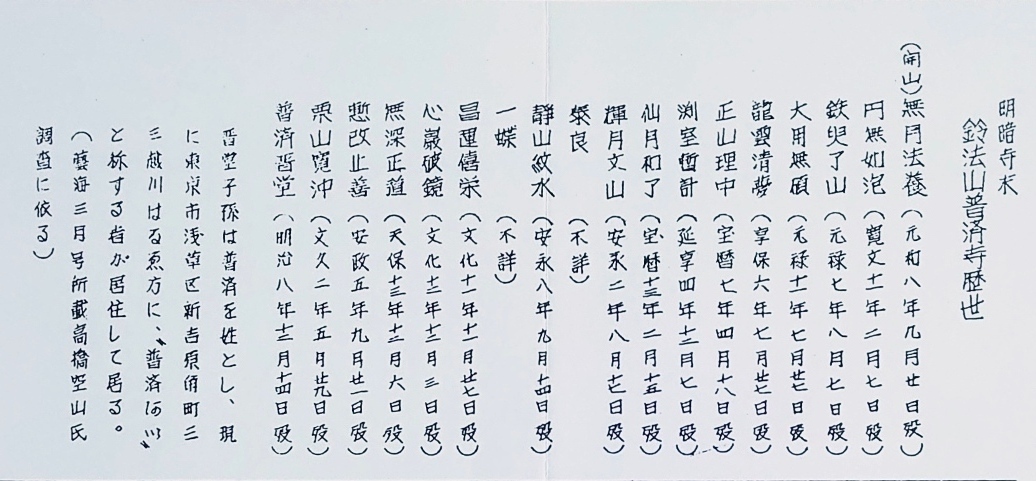 明暗寺末
鈴法山普済寺歴世
(開山)無門法養(元和八年九月廿日歿)
円無如泡(寛文十一年二月七日歿)
鉄叟了山(元禄七年八月七日歿)
大用無碩(元禄十一年七月廿七日歿)
龍雲清夢(享保六年七月廿七日歿)
正山理中(宝暦七年四月十八日歿)
渕室哲計(延享四年十二月七日歿)
仙月和了(宝暦十三年二月十五日歿)
輝月文山(安永二年八月十七日歿)
泰良(不詳)
静山紋水(安永八年九月十四日歿)
一蝶(不詳)
昌運僖栄(文化十一年十一月廿七日歿)
心巌破鏡(文化十三年十二月三日歿)
無深正道(天保十三年十二月六日歿)
悪改止善(安政五年九月廿一日歿)
栗山寛沖(文久二年五月廿九日歿)
普済習堂(明治八年十二月十四日歿)
習堂子孫は普済を姓とし、現
に東京市浅草区新吉原角町三
三越川はる気方に、〝普済河〟
と称する者が居住して居る。
(藝海三月号所載高橋空山氏
調査に依る)